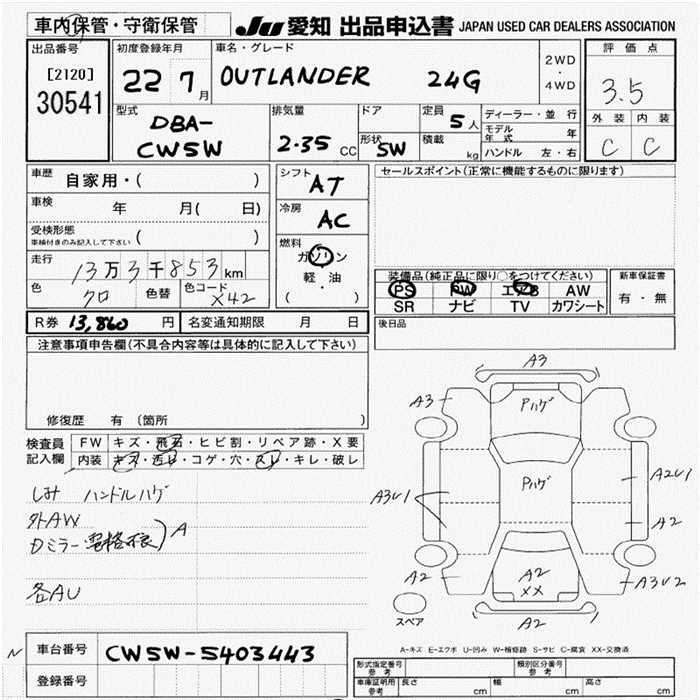 車内保管・守衛保管
JU 愛知 出品申込書 JAPAN USED CAR DEALERS ASSOCIATION
出品番号
[2120]
30541
初度登録年月
22 7月
車名・グレード
OUTLANDER 24G
2WD
・
4WD
評価点
3.5
外装 内装
C C
型式
DBA-
CW5W
排気量
2.35 CC
ドア
形状
5W
定員
5人
積載
kg
ディーラー・並行
モデル年式 年
ハンドル 左・右
車歴 自家用・( )
車検 年 月( 日)
受検形態
車検付きのみ記入して下さい ( )
走行 13万3千853km
色 クロ 色替 色コード X42
シフト AT
冷房 AC
燃料
ガソリン
・・
軽・油
( )
セールスポイント(正常に機能するものに限ります)
装備品(純正品に限り○をつけてください)
PS PW エアB AW
SR ナビ TV カワシート
新車保証書
有・無
後日品
R券 13,860円 名変通知期限 月 日
注意事項申告欄(不具合内容等は具体的に記入して下さい)
修復歴 有 〔箇所 〕
検査員記入欄
FW キズ・飛石・ヒビ割・リペア跡・X要
内装 キズ・汚れ・コゲ・穴・スレ・キレ・破レ
しみ ハンドルハゲ
外AW
Dミラー電格不良 A
各AU
A3
A3
Pハゲ
Pハゲ
A3U1
A2U1
A2
A2
A2
XX
A3U2
A2
スペア
A-キズ E-エクボ U-凹み W-補修跡 S-サビ C-腐食 XX-交換済
N 車台番号 CW5W-5403443
登録番号
形式指定番号 参考
類別区分番号 参考
車庫証明用 参考
長さ cm 幅 cm 高さ cm